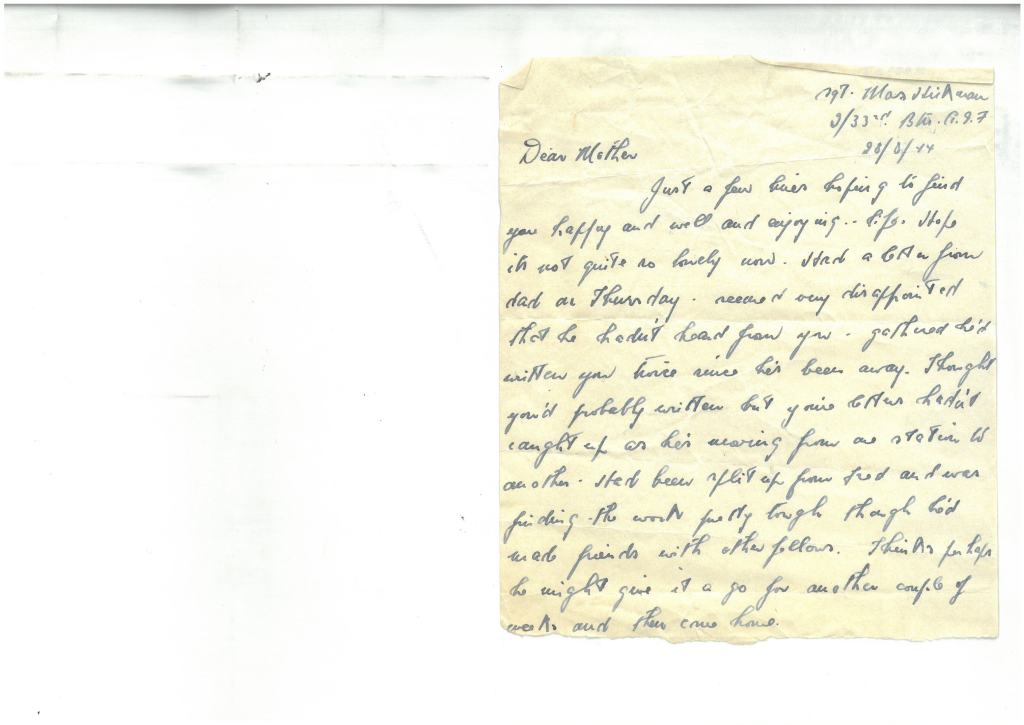 Sgt. Max Hickman
2/33rd. Btn. A.I.F
Dear Mother
Just a few lines hoping to find
you happy and well and enjoying.. life. Hope
its not quite so lonely now. Had a letter from
dad on Thursday. seemed very disappointed
that he hadn't heard from you. gathered he'd
written you twice since he's been away. Thought
you'd probably written but your letters hadn't
caught up as he's moving from one station to
another. Had been split up from Fred and was
finding the work pretty tough though he'd
made friends with other fellows. Thinks perhaps
he might give it a go for another couple of
weeks and then come home.